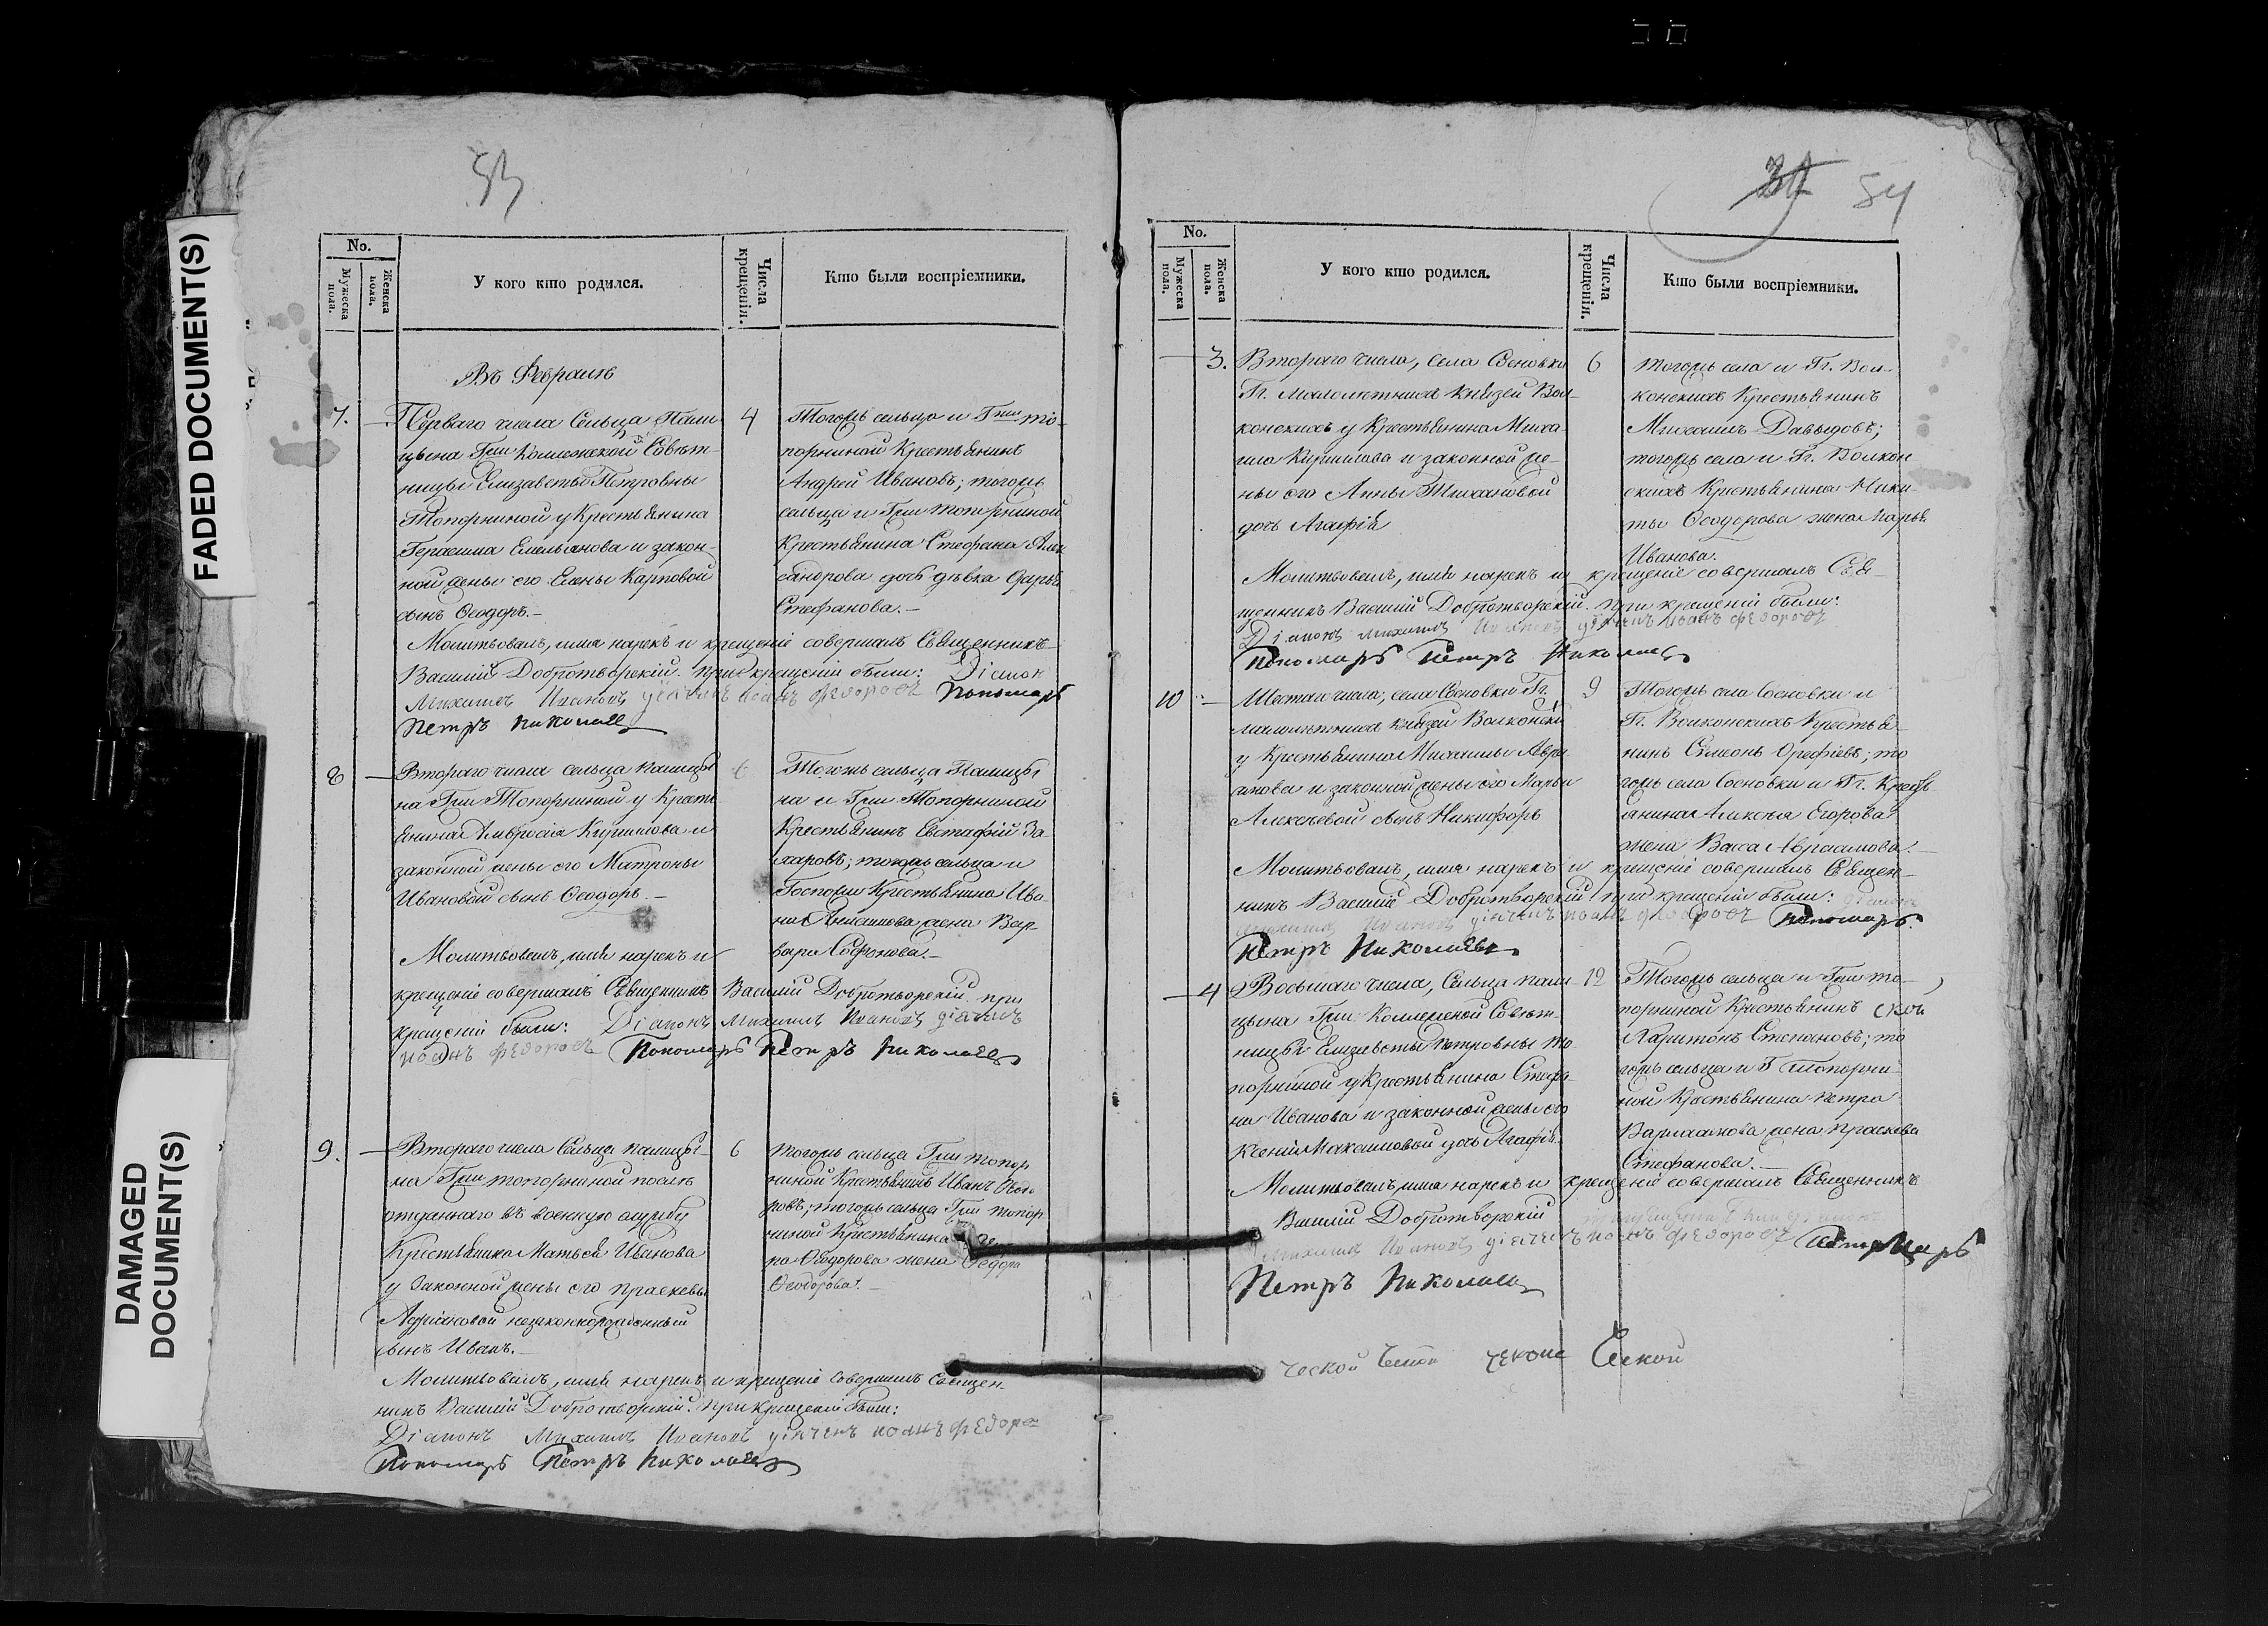 FADED DOCUMENT(S)
DAMAGED
DOCUMENT(S)
53
No.
Мужеска пола.
Женска пола.
У кого кто родился.
Числа крещенія.
Кто были воспріемники.
Въ Февралѣ
7.
Перваго числа Сельца Пали-
цына Гпжи Колежской Совѣт-
ницы Елизаветы Петровны
Топорниной у Крестьянина
Герасима Емельянова и закон-
ной жены его Елены Карповой
сынъ Ѳеодоръ.-
4
Тогожъ сельца и Гпжи То-
порниной Крестьянинъ
Андрей Ивановъ; тогожъ
сельца и Гпжи Топорниной
Крестьянина Стефана Але-
сандрова дочь дѣвка Дарья
Стефанова.-
Молитвовалъ, имя нарекъ и крещеніе совершалъ Священникъ
Василій Добротворскій. При крещеніи были: Діаконъ
Михаилъ Ивановъ дьячекъ Иоанъ Федоровъ Пономарь
Петръ Николаевъ
8
Втораго числа сельца Палицы-
на Гпжи Топорниной у Кресть-
янина Амвросія Кирилова и
законной жены его Матроны
Ивановой сынъ Ѳеодоръ.-
6
Тогожъ сельца Палицы-
на и Гпжи Топорниной
Крестьянинъ Евстафій За-
харовъ; тогожъ сельца и
Госпожи Крестьянина Ива-
на жена Вар-
вара Софонова.-
Молитвовалъ, имя нарекъ и
крещеніе совершалъ Священникъ Василій Добротворскій. При
крещеніи были: Діаконъ Михаилъ Ивановъ дьячекъ
Иоанъ Федоровъ Пономарь Петръ Николаевъ
9.
Втораго числа Сельца Палицы-
на Гпжи Топорниной послѣ
отданнаго въ военную службу
Крестьянина Матвея Иванова
у Законной жены его Прасковьи
Адріановой незаконнорожденный
сынъ Иванъ.-
6
Тогожъ сельца Гпжи Топор-
ниной Крестьянинъ Иванъ Ѳеодо-
ровъ; тогожъ сельца Гпжи Топор-
ниной Крестьянина
на Ѳеодорова жена
Ѳеодорова.-
Молитвовалъ, имя нарекъ и крещеніе совершалъ Священ-
никъ Василій Добротворскій. При крещеніи были:
Діаконъ Михаилъ Ивановъ дьячекъ Иоанъ Федоровъ
Пономарь Петръ Николаевъ
54
No.
Мужеска пола.
Женска пола.
У кого кто родился.
Числа крещенія.
Кто были воспріемники.
3.
Втораго числа, села Сосновки
Гг. Малолѣтнихъ Князей Вол-
конскихъ у Крестьянина Миха-
ила Кирилова и законной же-
ны его Анны Тихановой
дочь Агафія
6
Тогожъ села и Гг. Вол-
конскихъ Крестьянинъ
Михаилъ Давыдовъ;
тогожъ села и Гг. Волкон-
скихъ Крестьянина Ники-
ты Ѳеодорова жена Марья
Иванова.
Молитвовалъ, имя нарекъ и крещеніе совершалъ Свя-
щенникъ Василій Добротворскій. При крещеніи были:
Діаконъ Михаилъ Ивановъ дьячекъ Иоанъ Федоровъ
Пономарь Петръ Николаевъ
10
Шестаго числа, села Сосновки Гг.
малолѣтнихъ князей Волконски
у Крестьянина Михаилы Авра-
амова и законной жены его Марьи
Алексѣевой сынъ Никифоръ
9
Тогожъ села Сосновки и
Гг. Волконскихъ Крестья-
нинъ Симеонъ Орефіевъ; то
гожъ села Сосновки и Гг. Кресть-
янина Алексѣя Егорова
жена Васса Аврамова.-
Молитвовалъ, имя нарекъ и крещеніе совершалъ Священ-
никъ Василій Добротворскій при крещеніи были: діаконъ
Михаилъ Ивановъ дьячекъ Иоанъ Федоровъ Пономарь
Петръ Николаевъ
4
Восьмаго числа, Сельца Пали-
цына Гпжи Коллежской Совѣт-
ницы Елизаветы Петровны То-
порниной у Крестьянина Стефа-
на Иванова и законной жены его
Ксеніи Максимовой дочь Агафія.
12
Тогожъ сельца и Гпжи То-
порниной Крестьянинъ
Харитонъ Степановъ; то
гожъ сельца и Г Топорни-
ной Крестьянина Петра
Варламова жена Прасковья
Стефанова.-
Молитвовалъ имя нарекъ и крещеніе совершалъ Священникъ
Василій Добротворскій
Михаилъ Ивановъ дьячекъ Иоанъ Федоровъ Пономарь
Петръ Николаевъ
ческой